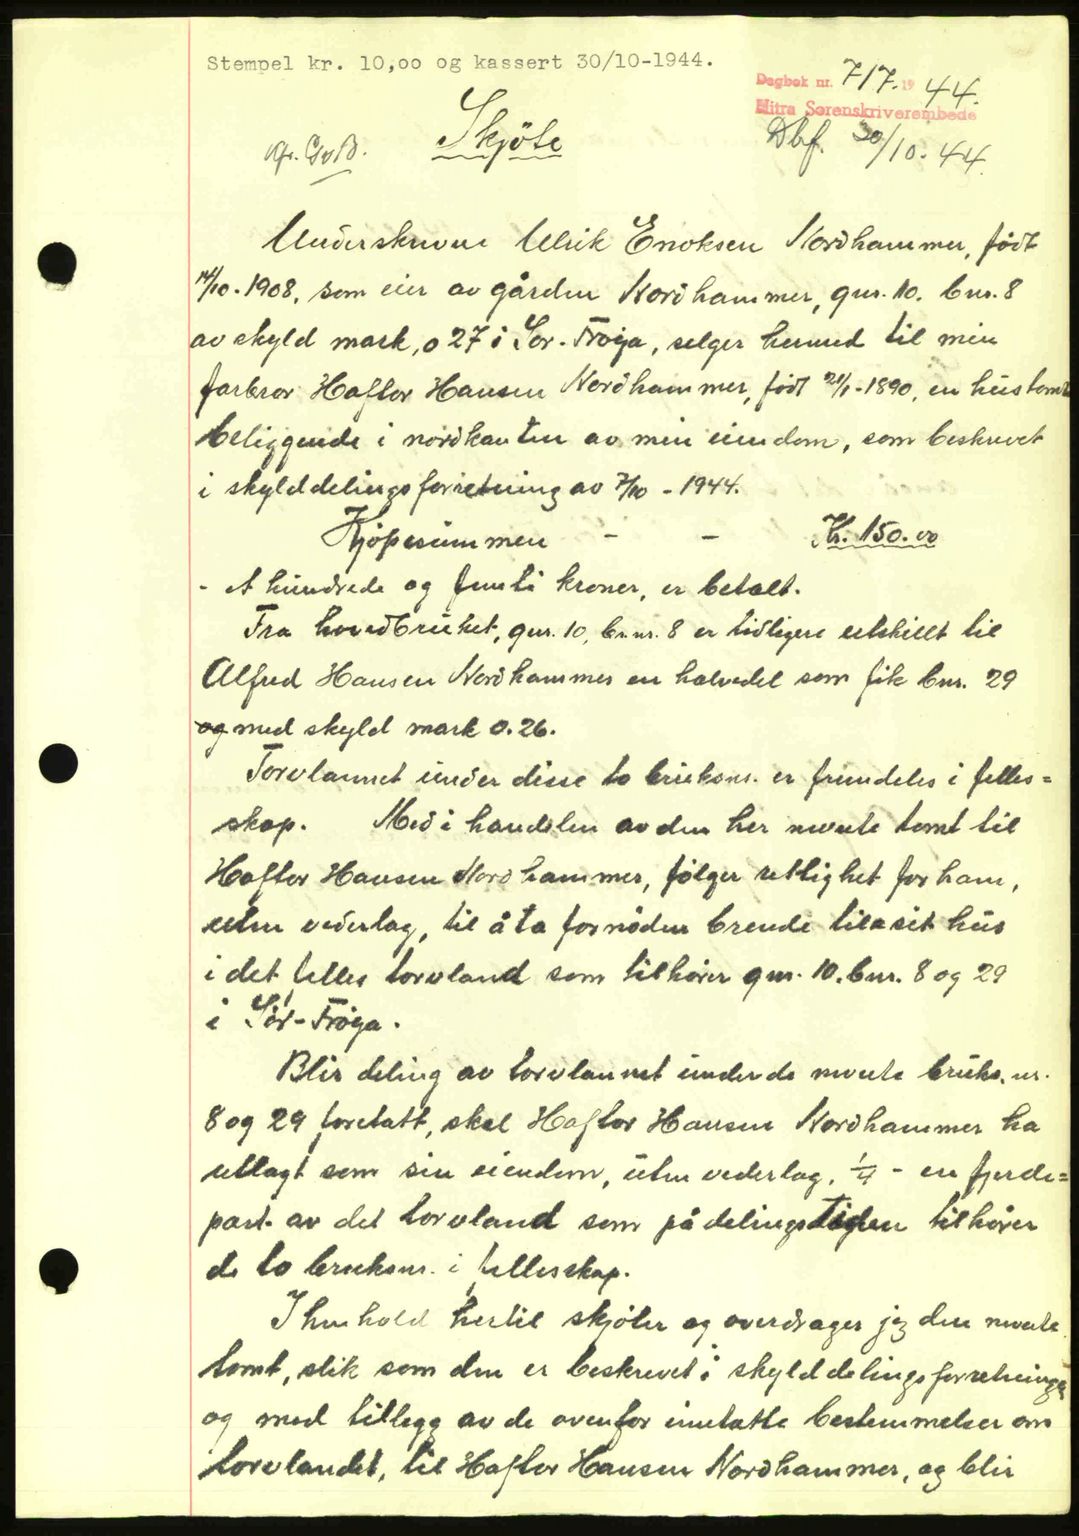 Stempel kr. 10,oo og kassert 30/10-1944.
Dagbok nr. 717. 19 44.
Hitra Sorenskriverembede
Dbf. 30/10-44.
Skjöte
Underskrevne Ulrik Enoksen Nordhammer, født
14/10-1908, som eier av gården Nordhammer, gnr. 10. bnr. 8
av skyld mark, 0 27 i Sør-Frøya, selger hermed til min
farbror Haftor Hansen Nordhammer, født 21/1-1890, en hustomt
beliggende i nordkanten av min eiendom, som beskrevet
i skylddelingsforretning av 7/10 - 1944.
Kjøpesummen - - Kr. 150.00
- et hundrede og femti kroner, er betalt.
Fra hovedbruket, gnr. 10, br.nr. 8 er tidligere utskillt til
Alfred Hansen Nordhammer en halvedel som fik bnr. 29
og med skyld mark 0.26.
Torvlannet under disse to bruksnr. er fremdeles i felles=
skap. Med i handelen av den her nevnte tomt til
Haftor Hansen Nordhammer, følger rettighet for ham,
uten vederlag, til å ta fornøden brende til sit hus
i det felles torvland som tilhører gnr. 10. bnr. 8 og 29
i Sør-Frøya.
Blir deling av torvlannet under de nevnte bruks.nr.
8 og 29 foretatt, skal Haftor Hansen Nordhammer ha
utlagt som sin eiendom, uten vederlag, 1/4 - en fjerde=
part av det torvland som på delingstiden tilhører
de to bruksnr. i fellesskap.
I henhold hertil skjøter og overdrager jeg den nevnte
tomt, slik som den er beskrevet i skylddelingsforretningen
og med tillegg av de ovenfor inntatte bestemmelser om
torvlandet, til Haftor Hansen Nordhammer, og blir